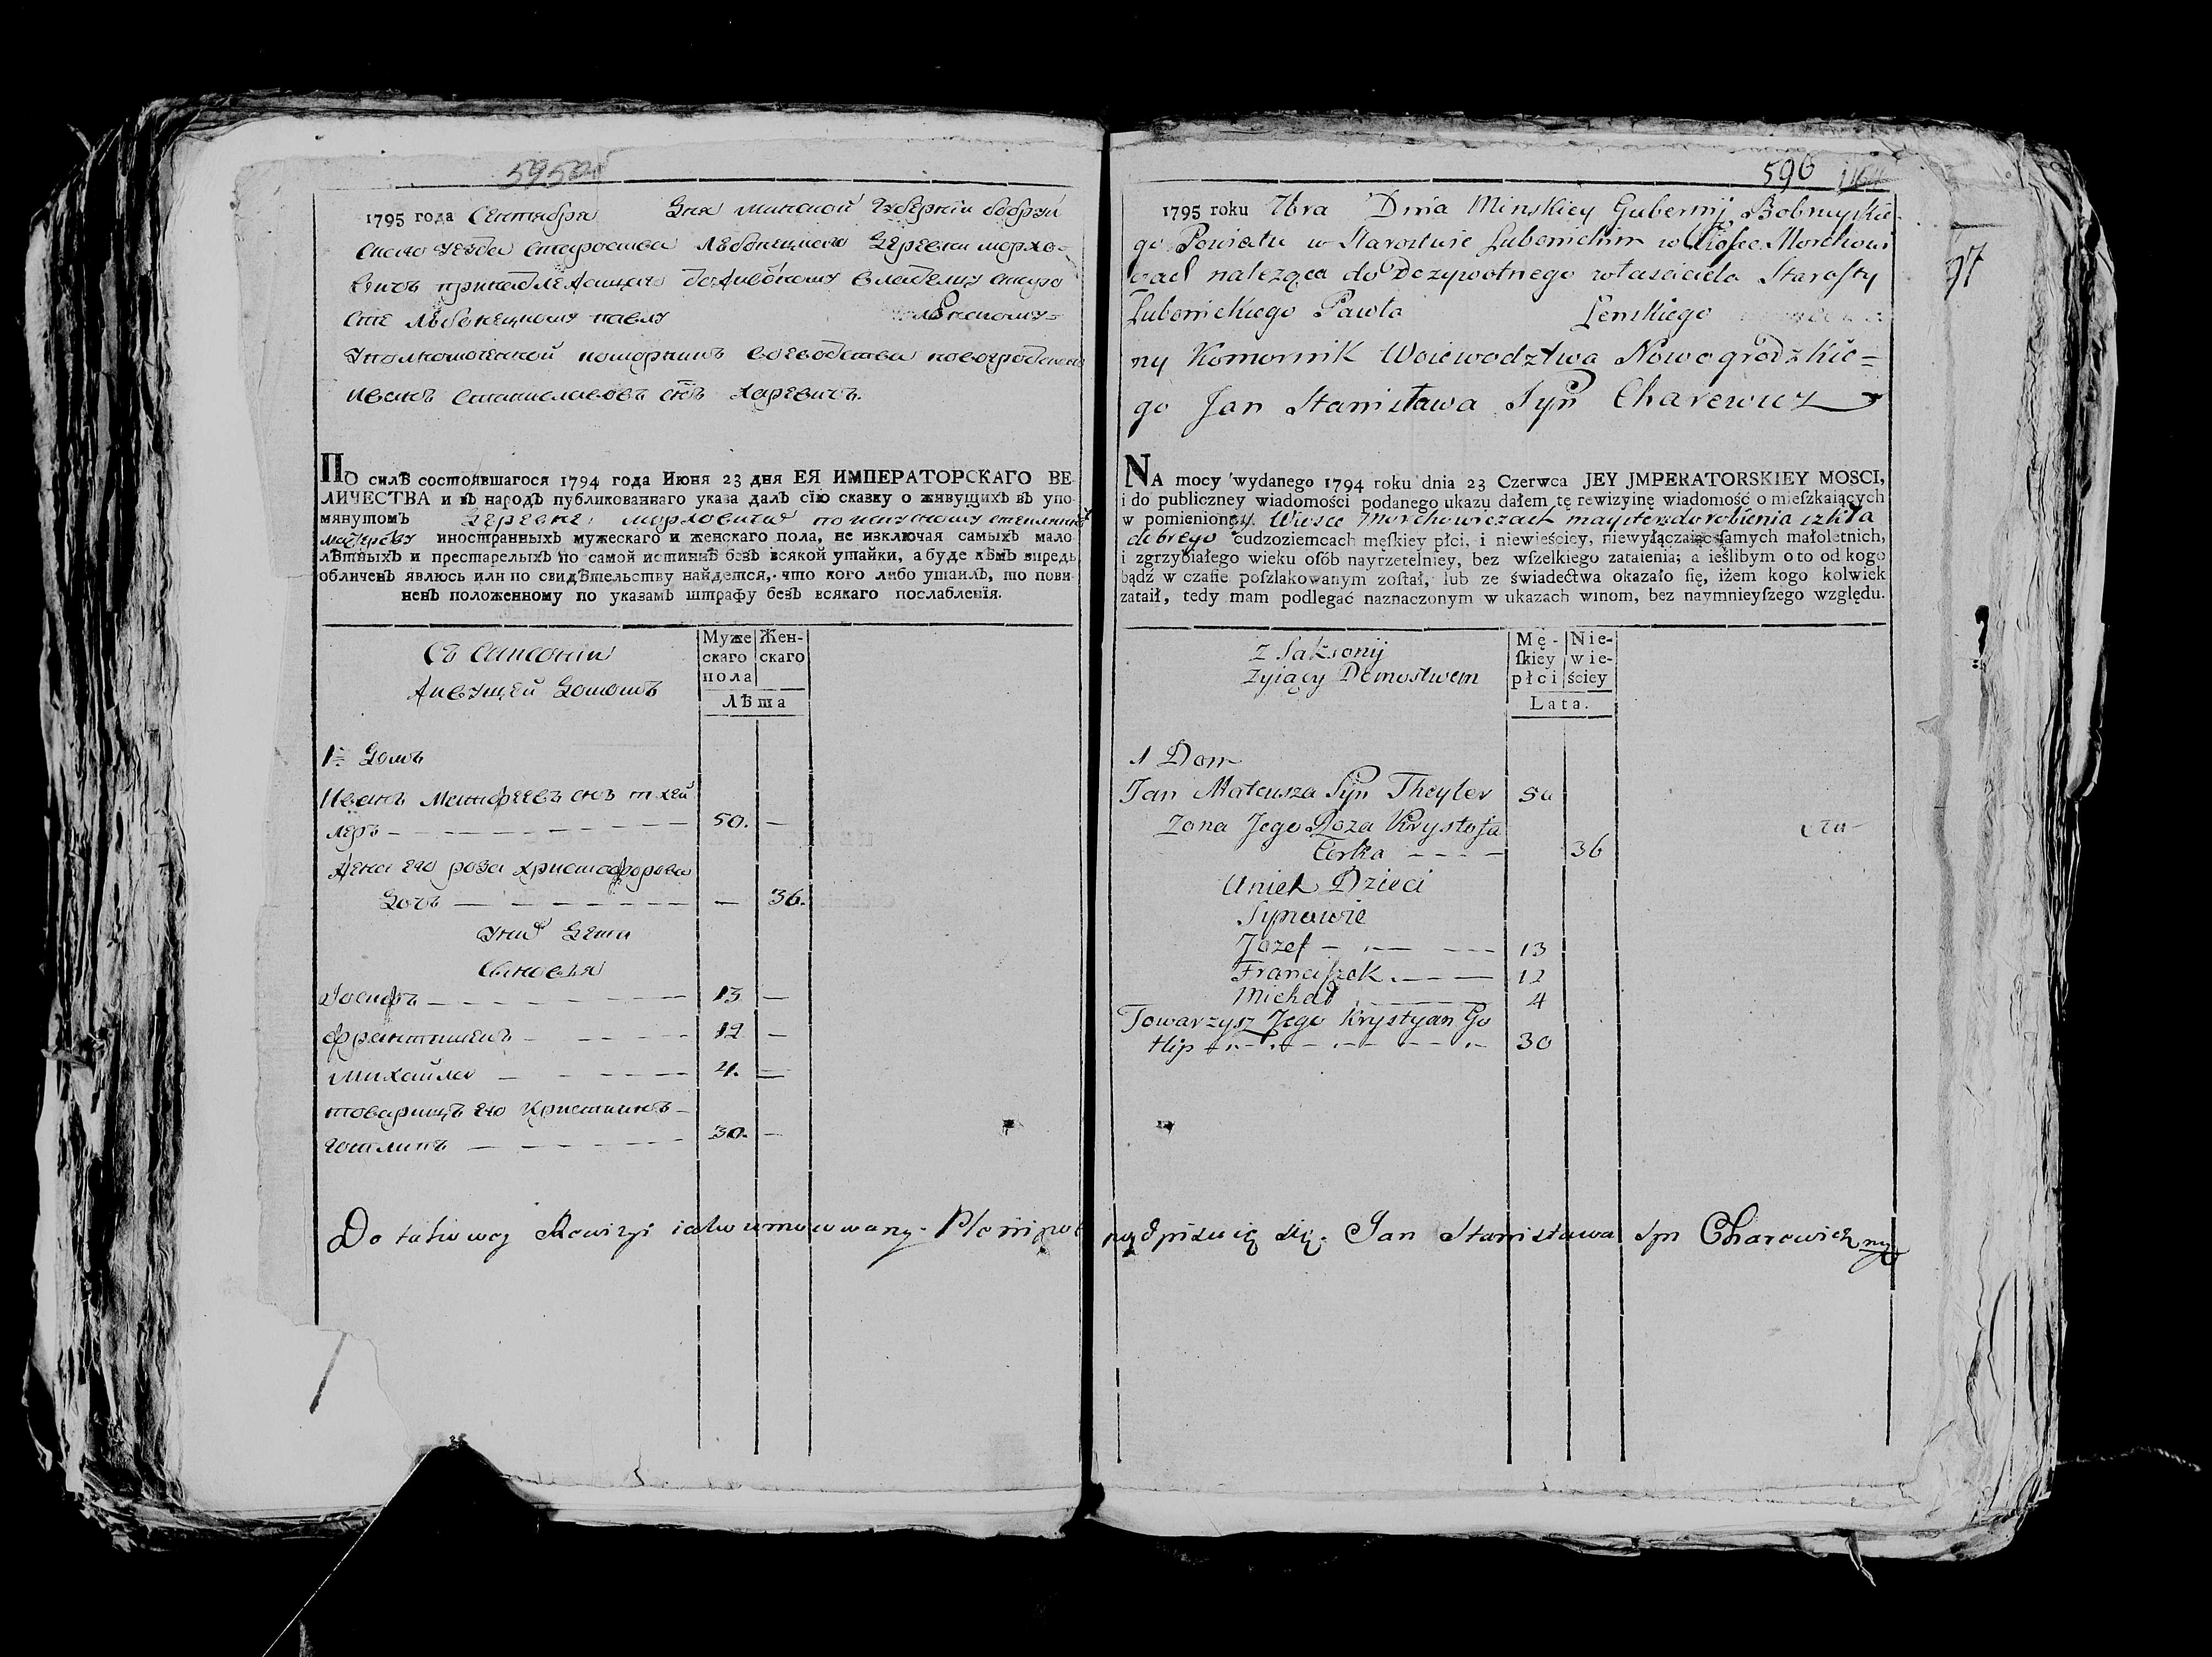 595об
1795 года Сентября Дня минской Губернiи бобруй
скаго уезда староства Любоницкаго Деревни морхо-
вичъ принадлежащаго дожив0тному владельцу старо
сте Любоницкому павлу Ленскому
Уполномоченной коморникъ воеводства новогродскаго
Иванъ Станиславовъ снъ Харевичъ.
ПО силѣ состоявшагося 1794 года Июня 23 дня ЕЯ ИМПЕРАТОРСКАГО ВЕ-
ЛИЧЕСТВА и въ народъ публикованнаго указа далъ сїю сказку о живущихъ въ упо-
мянутомъ Деревне морховичах
иностранныхъ мужескаго и женскаго пола, не изключая самыхъ мало-
лѣтныхъ и престарелыхъ по самой истиннѣ безъ всякой утайки, а буде кѣмъ впредь
обличенъ явлюсь или по свидѣтельству найдется, что кого либо утаилъ, то пови-
ненъ положенному по указамъ штрафу безъ всякаго послабленїя.
Съ Саксонiи
Живущей Домомъ
Муже
скаго
пола
Жен-
скаго
Лѣта
1й Домъ
Иванъ Матфеевъ снъ тхей
леръ 50. —
Жена его роза христофорова
Дочъ — 36.
Унихъ Дети
Сыновья
Iосифъ 13 —
францишекъ 12 —
Михайла 4. —
товарищъ его Християнъ
готлипъ 30. —
596
1795 roku 7bra Dnia Minskiey Gubernij Bobruyskie-
go Powiatu w Starostwie Lubonickim w Wiosce Morchowi
czach należąca do Dożywotnego własciciela Starosty
Lubonickiego Pawła Lenskiego
ny Komornik Woiewodztwa Nowogrodzkie=
go Jan Stanisława Syn Charewicz
NA mocy wydanego 1794 roku dnia 23 Czerwca JEY JMPERATORSKIEY MOSCI,
i do publiczney wiadomości podanego ukazu dałem tę rewizyinę wiadomość o mieſzkaiących
w pomienioney Wiosce Morchowiczach maystew do robienia szkła
dobrego cudzoziemcach męſkiey płci, i niewieściey, niewyłączaiąc ſamych małoletnich,
i zgrzybiałego wieku osób nayrzetelniey, bez wſzelkiego zataienia; a ieślibym o to od kogo
bądź w czaſie poſzlakowanym zoſtał, lub ze świadectwa okazało ſię, iżem kogo kolwiek
zataił, tedy mam podlegać naznaczonym w ukazach winom, bez naymnieyſzego względu.
Z Saksonij
Zyiący Domostwem
Mę-
ſkiey
płci
Nie-
wie-
ściey
Lata.
1 Dom
Jan Mateusza Syn Theyler 50
Zona Jego Roza Krystofa
Corka 36
Unich Dzieci
Synowie
Jozef 13
Franciszek 12
Michał 4
Towarzysz Jego Krystyan Go
tlip 30
Do takowey Rewizyi iako umocowany Plenipot podpisuię się. Jan Stanisława Syn Charewicz